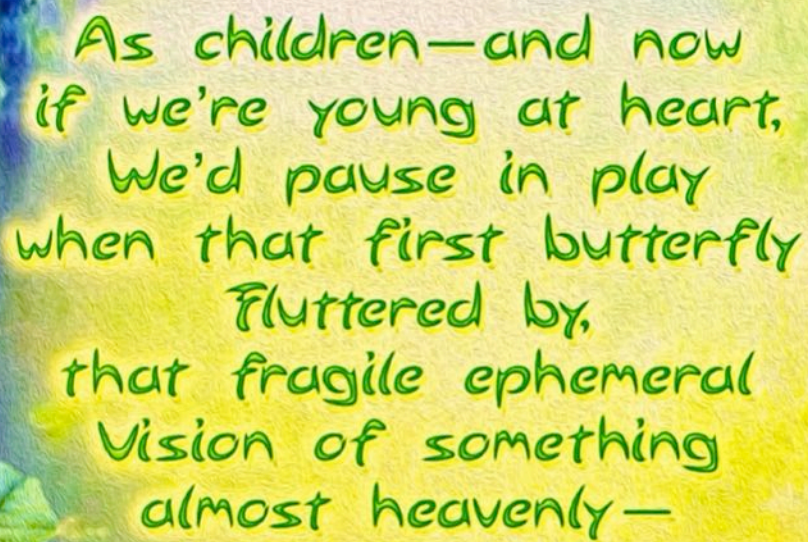 As children—and now
if we're young at heart,
We'd pause in play
when that first butterfly
Fluttered by,
that fragile ephemeral
Vision of something
almost heavenly—